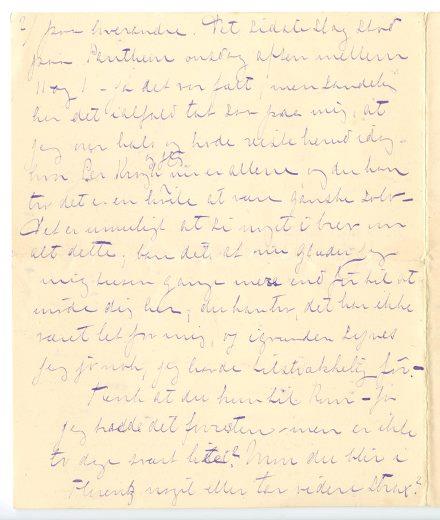 2)
paa hverandre. Det sidste Slag stod
paa Pantheon onsdag aften mellem
11 og 1 – ja det var fælt, men
har det ialfald tat saa paa mig, at
jeg over hals og hode reiste herud idag –
hvor Per Krogh er allene og du kan
tro det er en hvile at være ganske
Det er umuligt at si noget i brev om
alt dette; bare det, at nu glæder jeg
mig tusen gange mere end før til at
møde dig her; du kan tro, det har ikke
været let for mig, og igrunden synes
jeg jo nok, jeg havde tilstrækkelig før. –
Tænk at du kom til Rom – ja
jeg hadde det forresten – men er ikke
to dage svært lite? Mon du blir i
Florentz noget eller tar videre strax?